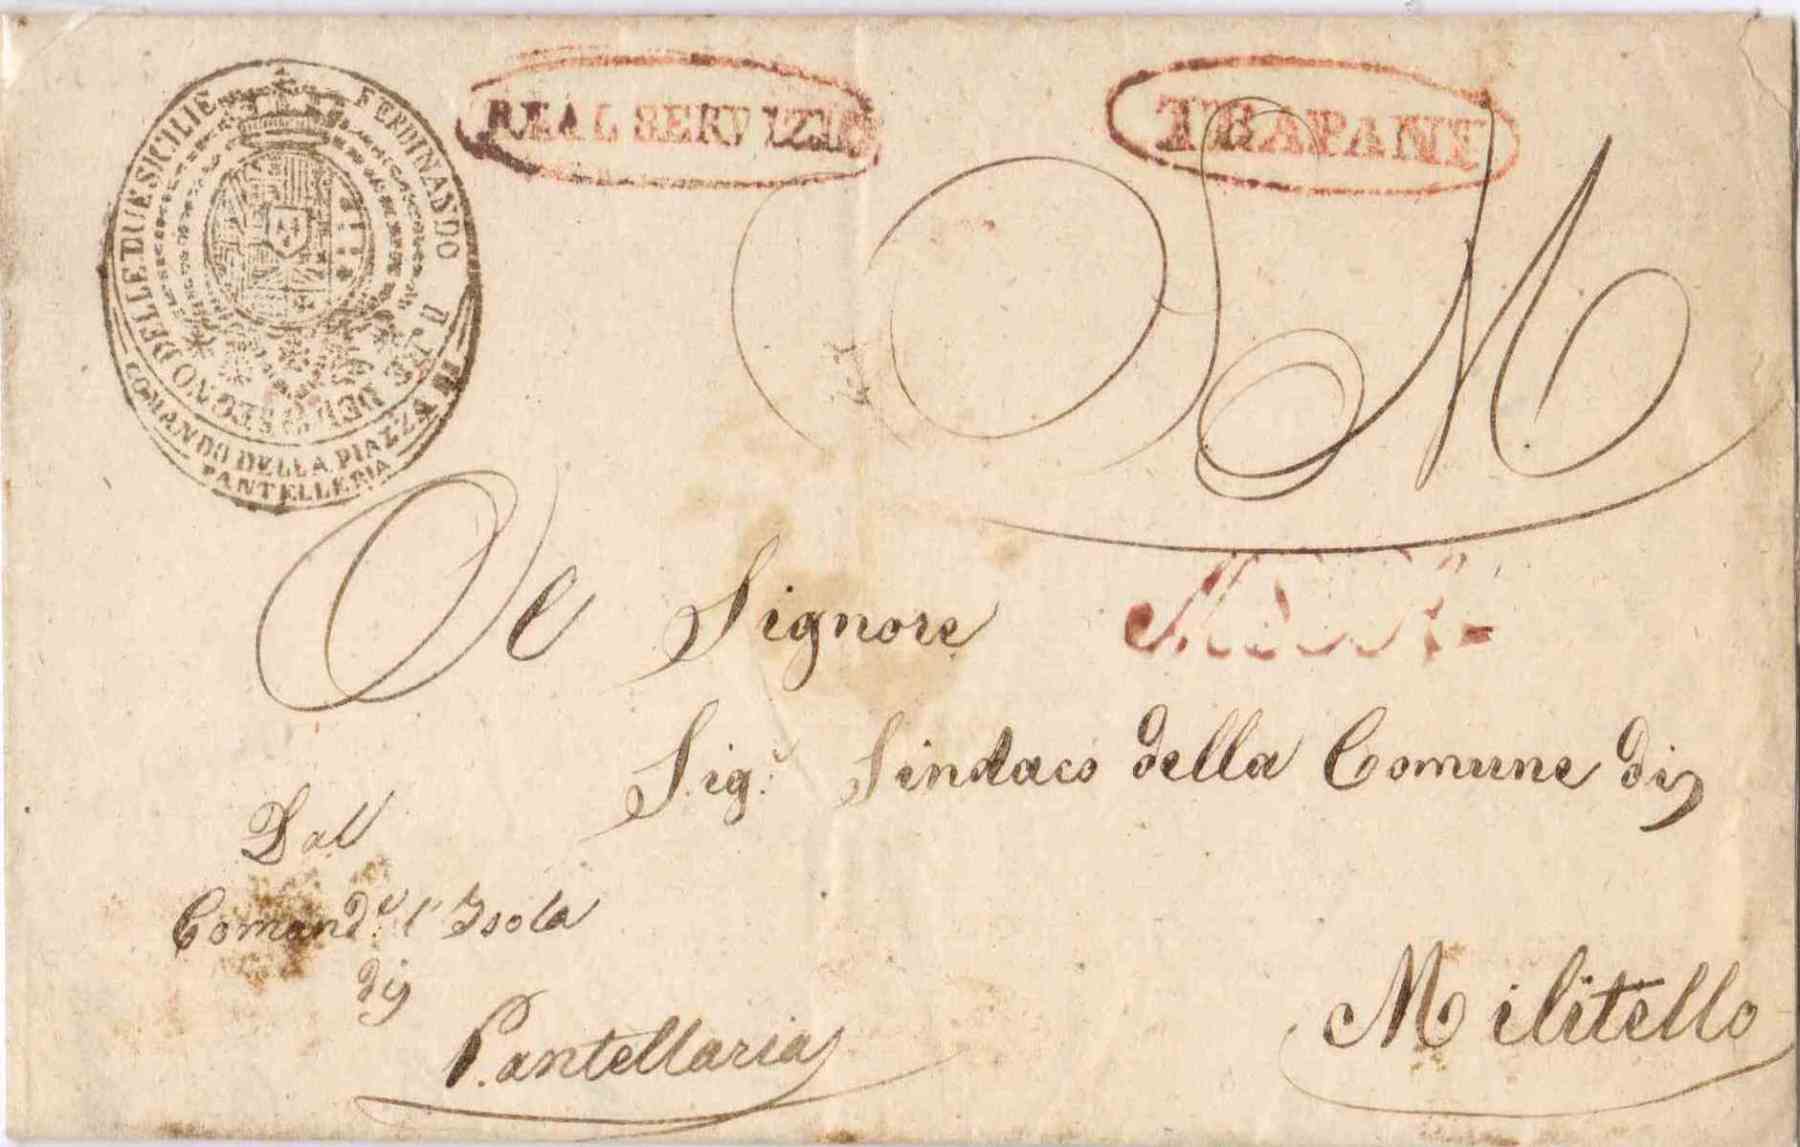 FERDINANDO II. RE DEL REGNO DELLE DUE SICILIE
COMANDO DELLA PIAZZA IN
PANTELLERIA
REAL SERVIZIO
TRAPANI
S M
Al Signore
Sig.r Sindaco della Comune di
Militello
Dal
Comand.e l'Isola
di
Pantellaria